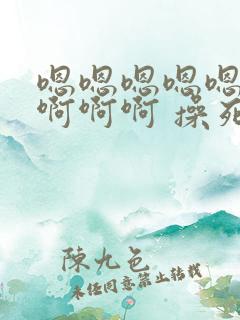 嗯嗯嗯嗯嗯
啊啊啊 操死
陳九色
未经同意禁止转载